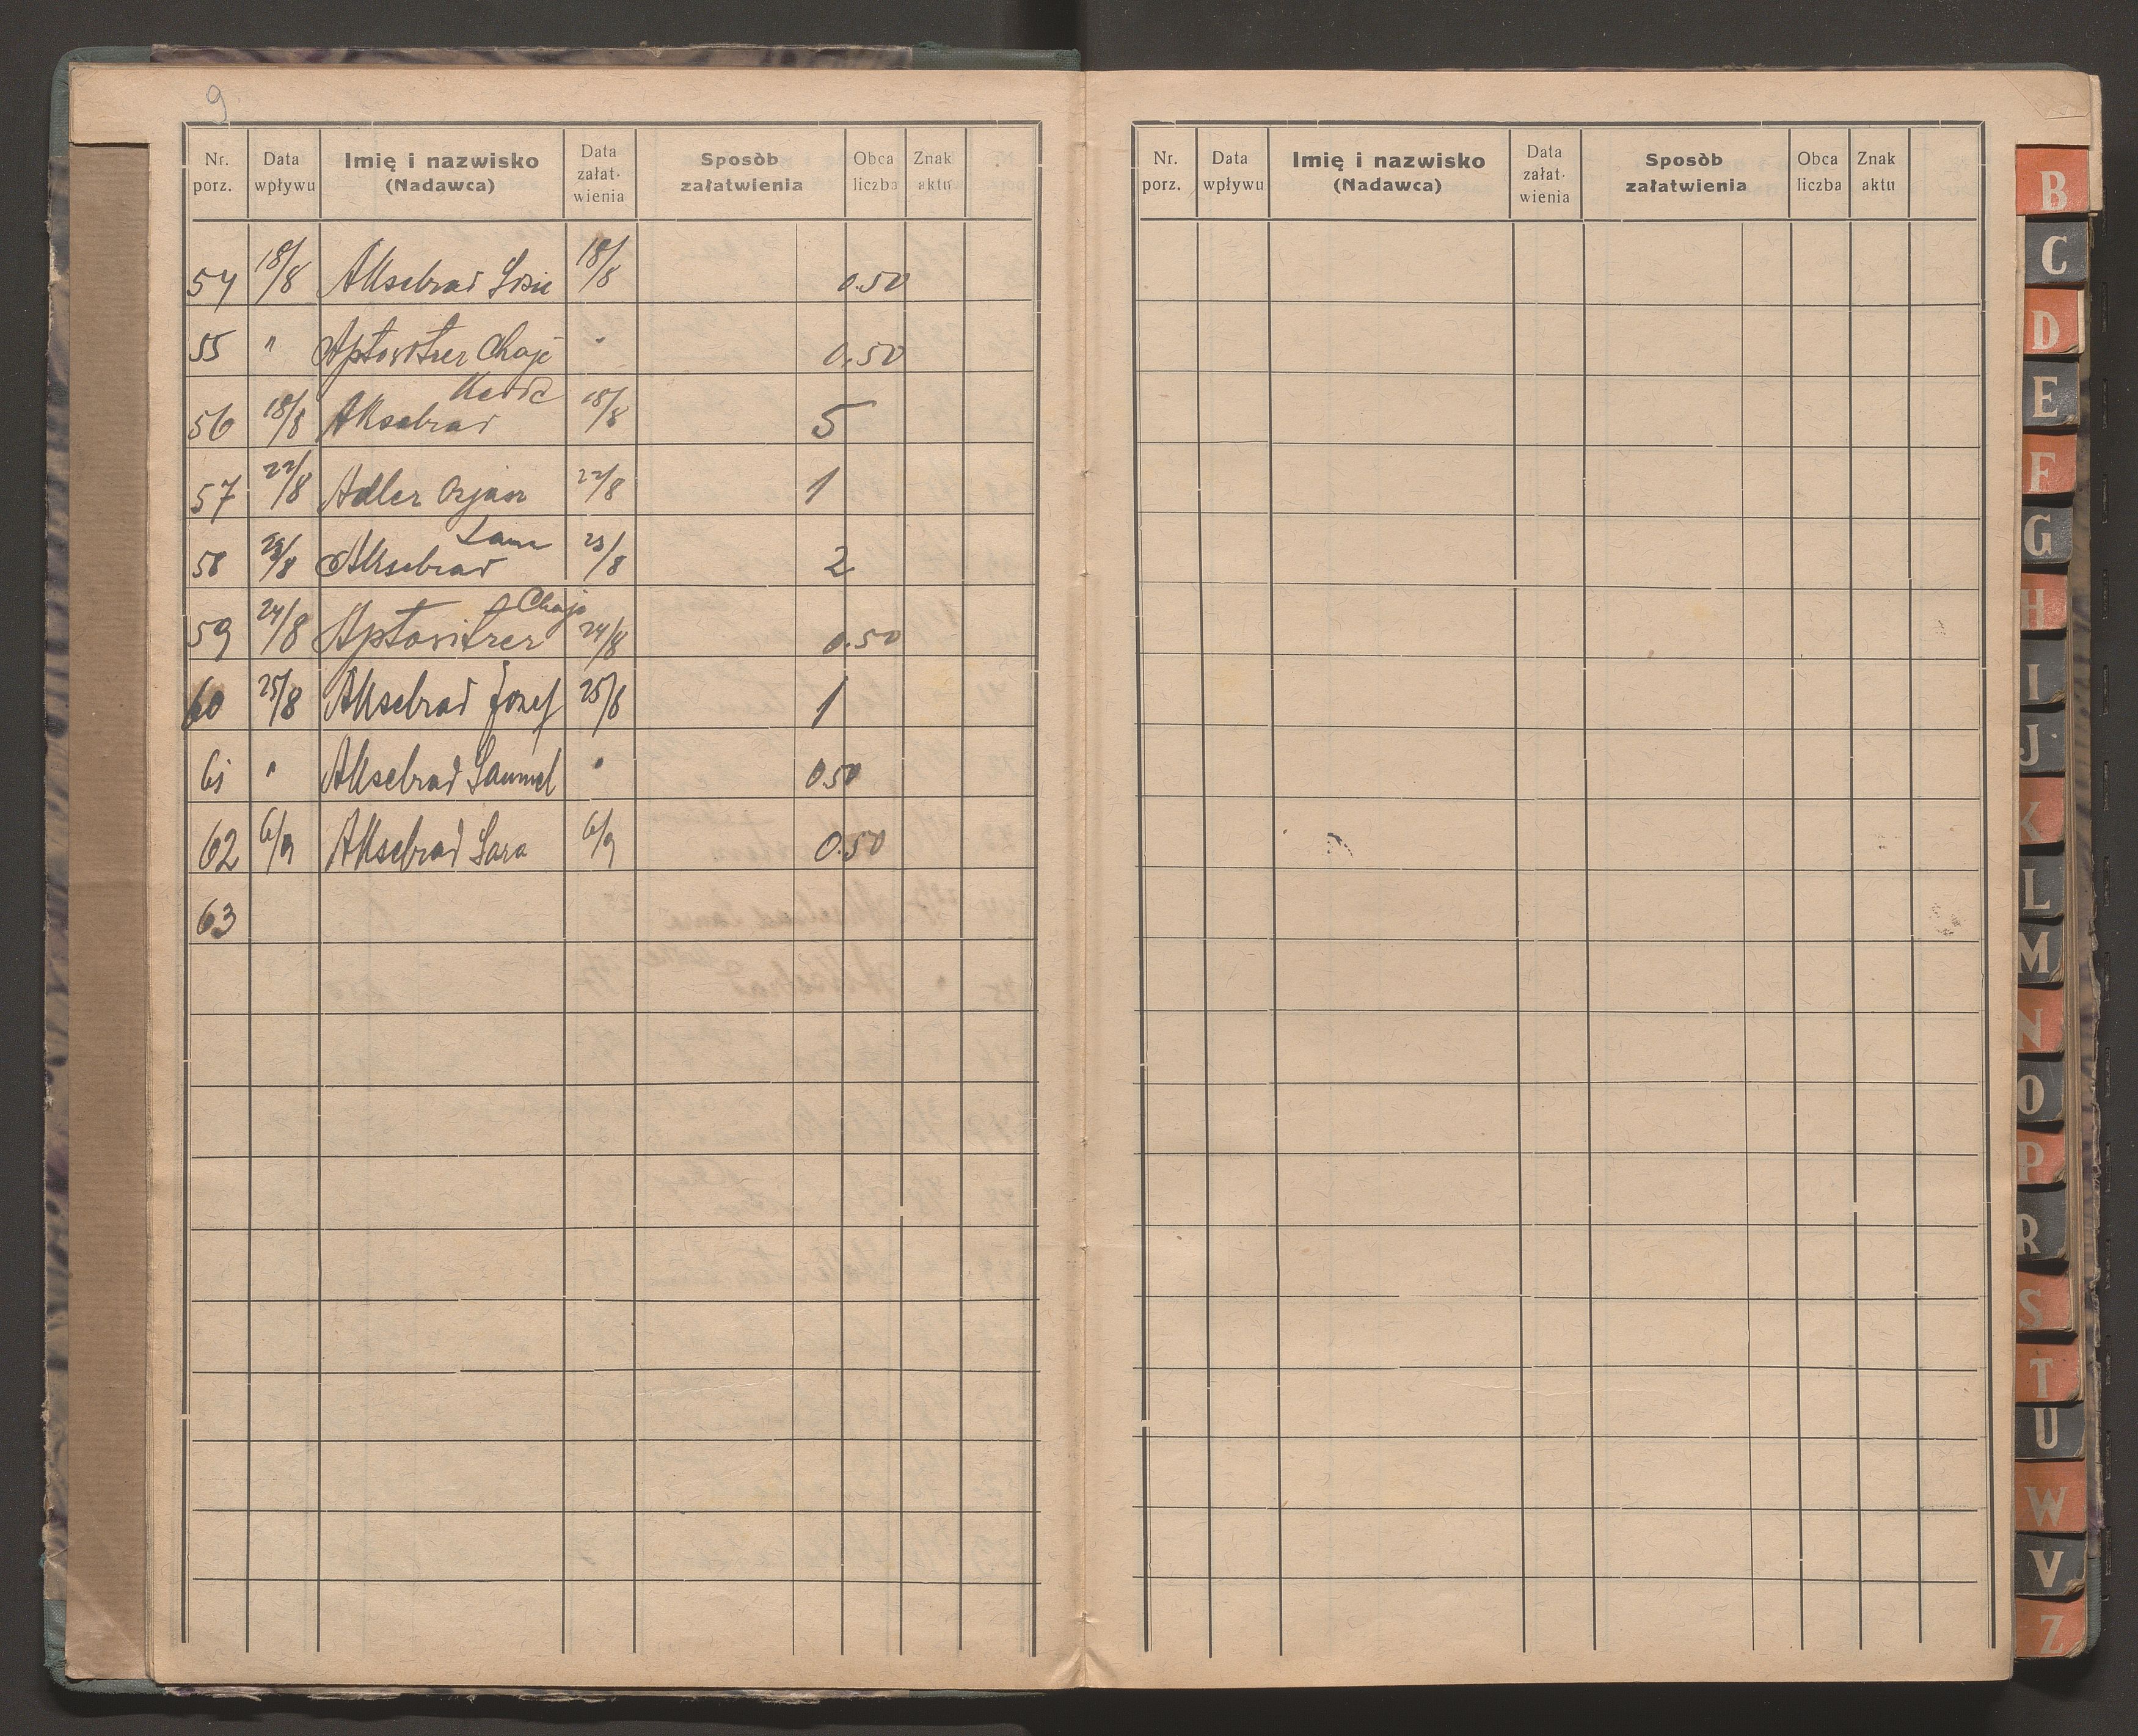 9
Nr. porz. Data wpływu Imię i nazwisko (Nadawca) Data załat-wienia Sposòb załatwienia Obca liczba Znak aktu
54 18/8 Akselrad 18/8 0.50
55 " Aptowitzer Chaje " 0.50
56 18/8 Akselrad 18/8 5
57 22/8 Adler 22/8 1
58 23/8 Akselrad 23/8 2
59 24/8 Aptowitzer Chaje 24/8 0.50
60 25/8 Akselrad Józef 25/8 1
61 " Akselrad Samuel " 0.50
62 6/9 Akselrad Sara 6/9 0.50
63
Nr. porz. Data wpływu Imię i nazwisko (Nadawca) Data załat-wienia Sposòb załatwienia Obca liczba Znak aktu
B
C
D
E
F
G
H
I
J
K
L
M
N
O
P
R
S
T
U
W
V
Z